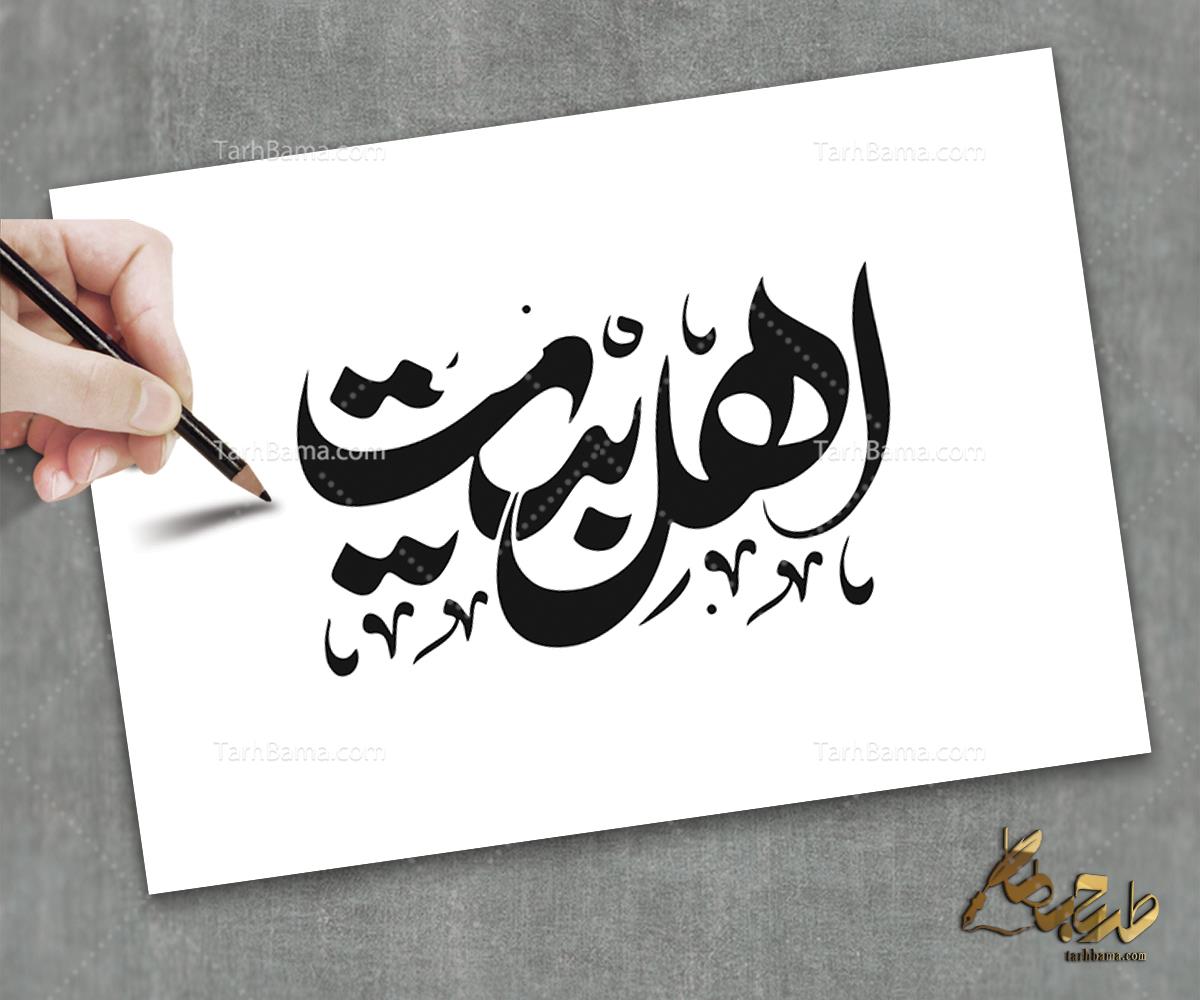 اهل بیت
TarhBama.com TarhBama.com
TarhBama.com TarhBama.com
TarhBama.com TarhBama.com
طرح با ما
tarhbama.com